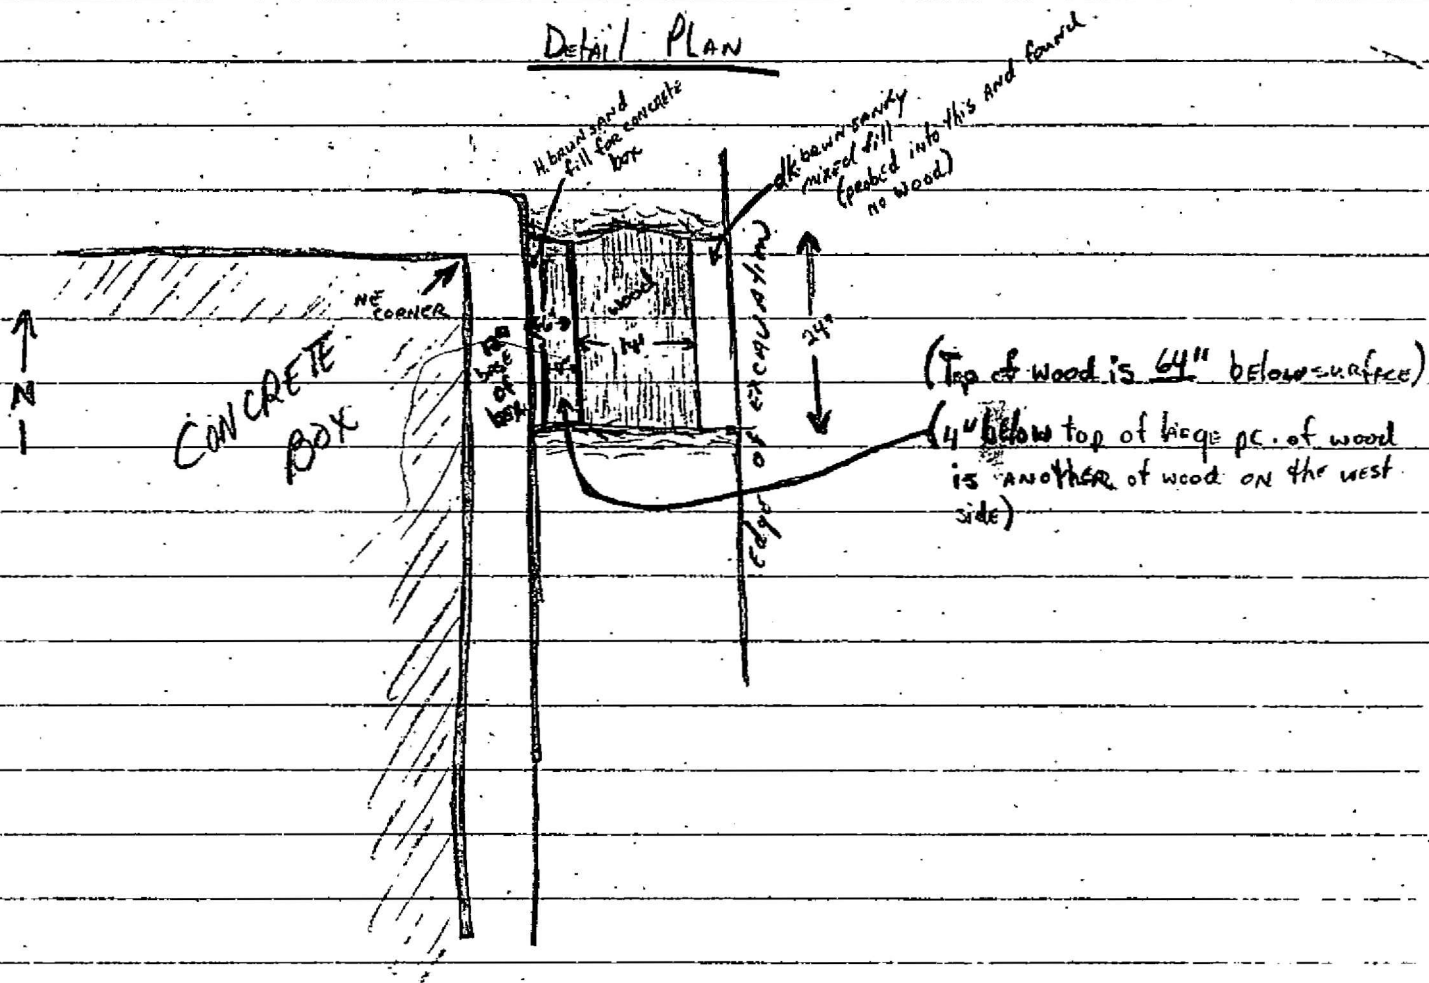 Detail Plan
lt. brwn sand
fill for concrete
box
dk. brwn sandy
mixed fill
(probed into this and found
no wood)
NE
CORNER
CONCRETE
BOX
N
wood
14"
24"
Edge of excavation
(Top of wood is 64" below surface)
(4" below top of large pc. of wood
is another of wood on the west
side)